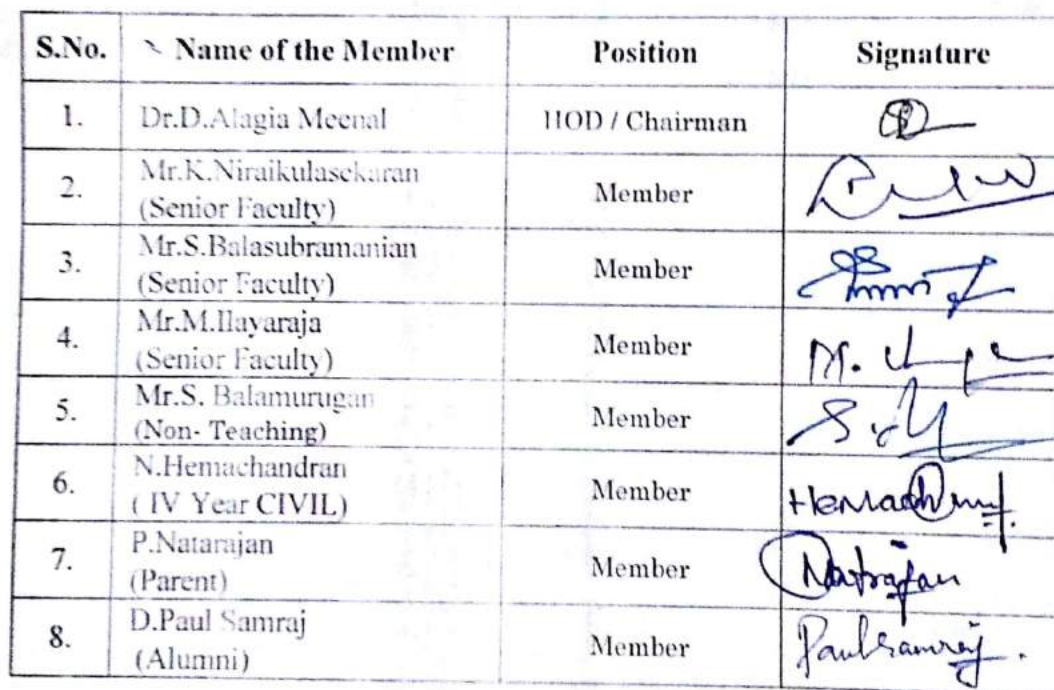 S.No. Name of the Member Position Signature
1. Dr.D.Alagia Meenal HOD / Chairman
2. Mr.K.Niraikulasekaran
(Senior Faculty) Member
3. Mr.S.Balasubramanian
(Senior Faculty) Member
4. Mr.M.Ilayaraja
(Senior Faculty) Member M.
5. Mr.S. Balamurugan
(Non- Teaching) Member
6. N.Hemachandran
( IV Year CIVIL) Member
7. P.Natarajan
(Parent) Member Natrajan
8. D.Paul Samraj
(Alumni) Member Paulsamraj.